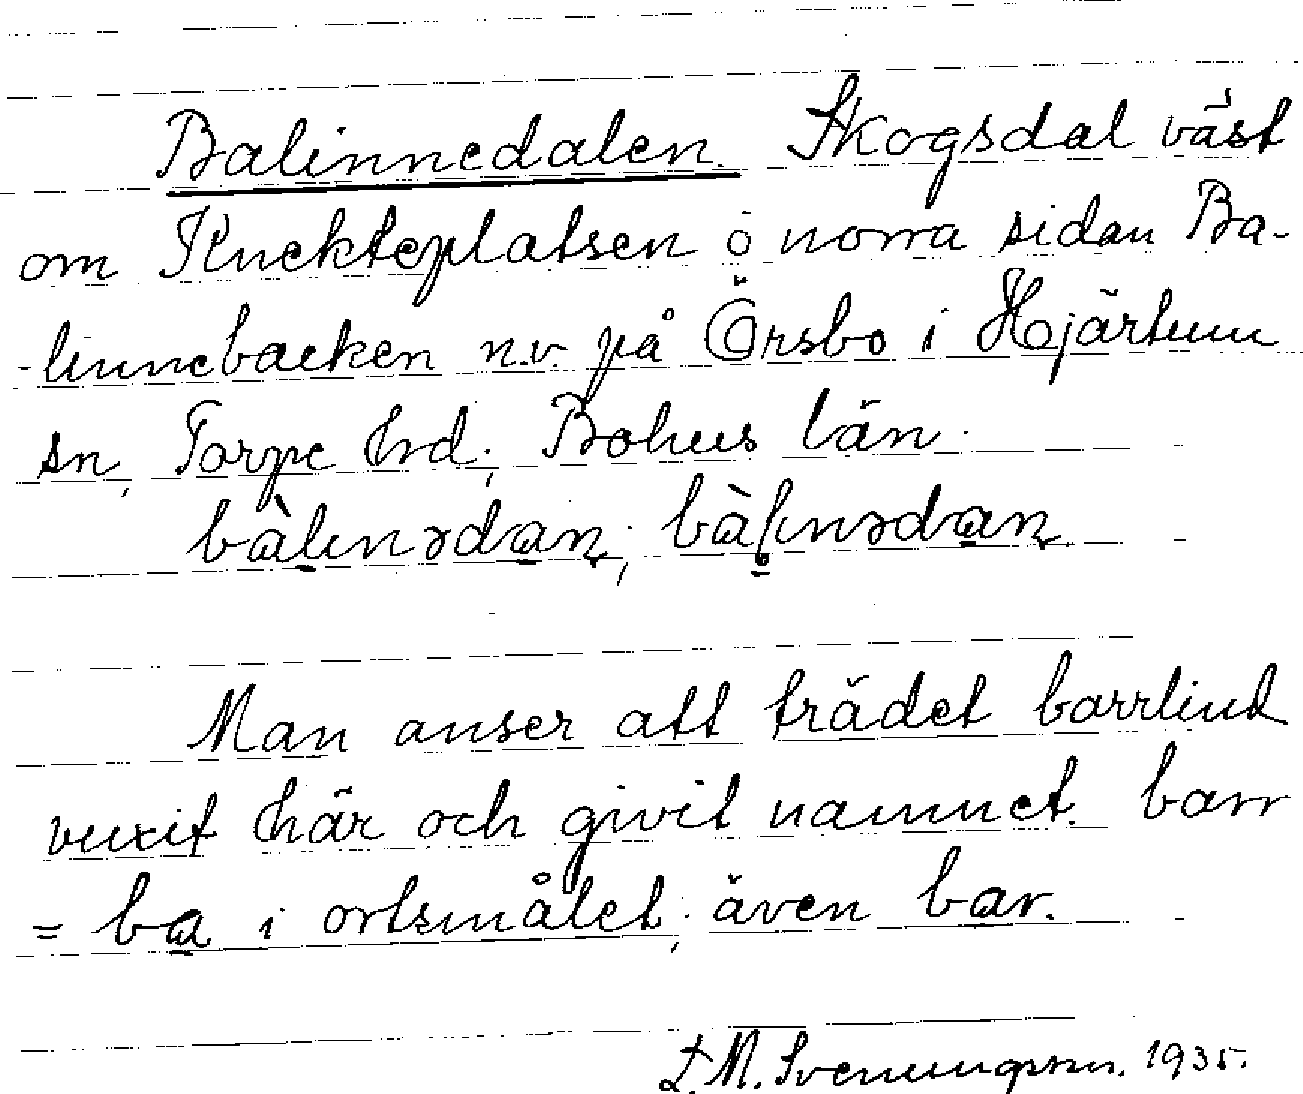 Balinnedalen. Skogsdal väst
om Knekteplatsen o norra sidan Ba-
-linnebacken n.v. på Örsbo i Hjärtum
sn, Torpe hrd; Bohus län.
Man anser att trädet barrlind
vuxit här och givit namnet. barr
= ba i ortsmålet; även bar.
L.M. Svenungsson. 1935.